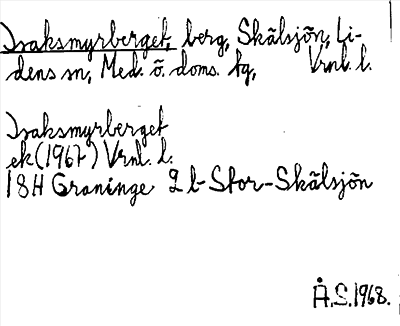 Isaksmyrberget, berg, Skälsjön, Li-
dens sn, Med. ö. doms. tg, Vrnl. l.
Isaksmyrberget
ek (1967) Vrnl. l.
18H Graninge 2 b Stor-Skälsjön
Å.S. 1968.